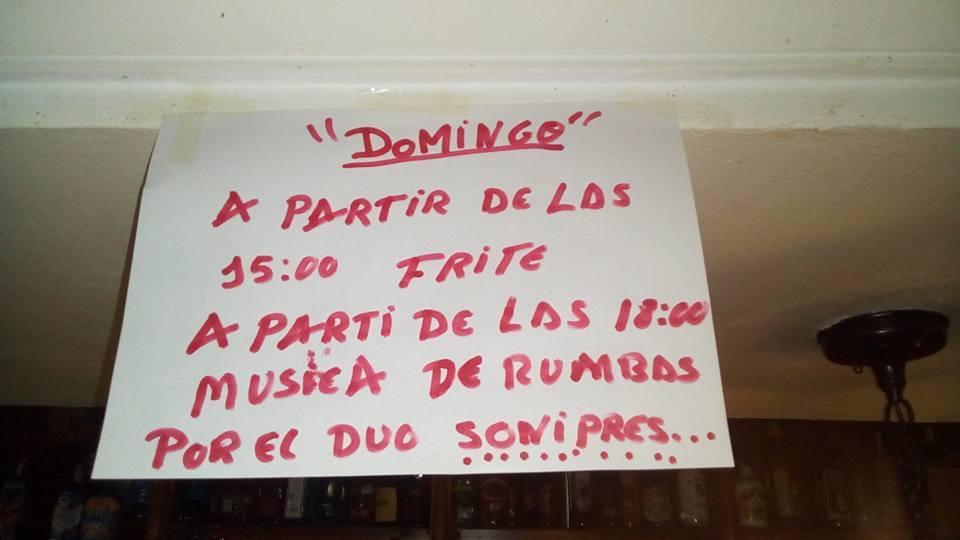 "DOMINGO"
A PARTIR DE LAS
15:00 FRITE
A PARTI DE LAS 18:00
MUSICA DE RUMBAS
POR EL DUO SONIPRES...